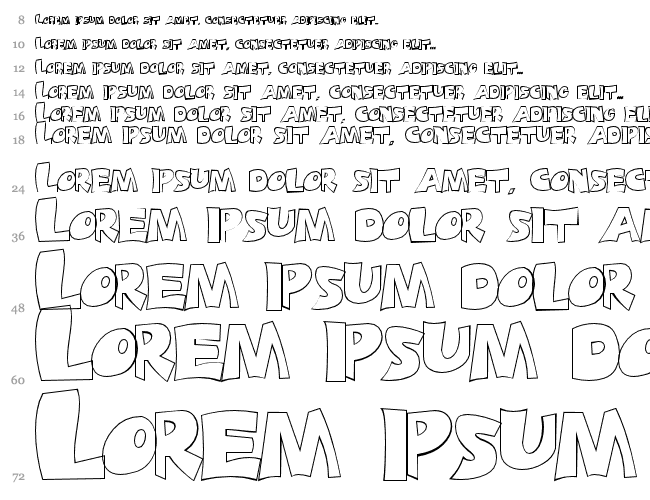 8 Lorem ipsum dolor sit amet, consectetuer adipiscing elit...
10 Lorem ipsum dolor sit amet, consectetuer adipiscing elit...
12 Lorem ipsum dolor sit amet, consectetuer adipiscing elit...
14 Lorem ipsum dolor sit amet, consectetuer adipiscing elit...
16 Lorem ipsum dolor sit amet, consectetuer adipiscing eli
18 Lorem ipsum dolor sit amet, consectetuer adipis
24 Lorem ipsum dolor sit amet, consect
36 Lorem ipsum dolor sit am
48 Lorem ipsum dolor
60 Lorem ipsum do
72 Lorem ipsum